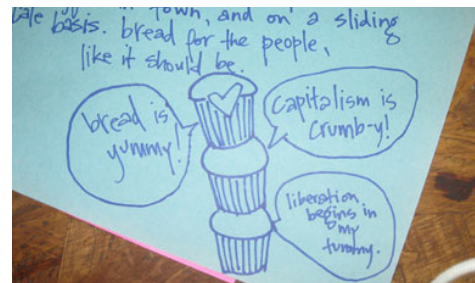 in town, and on a sliding
basis. bread for the people,
like it should be.
bread is
yummy!
capitalism is
crumb-y!
liberation
begins in
my
tummy.